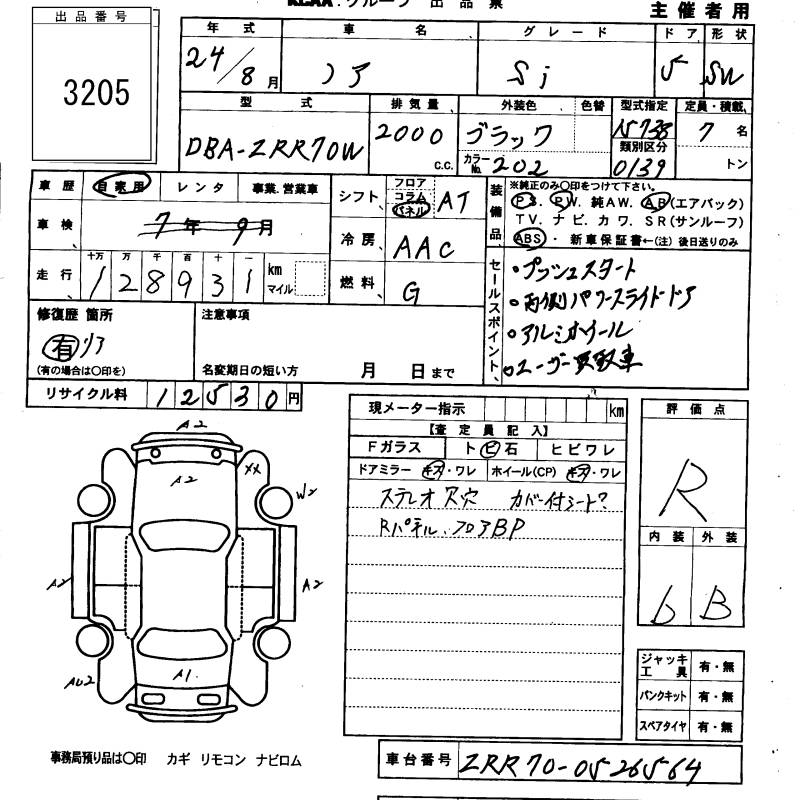 KCAA.グループ 出品票
主催者用
出品番号
3205
年式 車名 グレード ドア 形状
24/8月 ノア Si 5 SW
型式 排気量 外装色 色替 型式指定 定員・積載
DBA-ZRR70W 2000 C.C. ブラック N738 7名
類別区分
カラーNo. 202 0139 トン
車歴 自家用 レンタ 事業.営業車
車検 7年9月
走行 十万 万 千 百 十 一
128931 km マイル
シフト フロア コラム パネル AT
冷房 AAC
燃料 G
装備品
※純正のみ○印をつけて下さい。
PS. PW. 純AW. AB(エアバック)
TV. ナビ. カワ. SR(サンルーフ)
ABS ・ 新車保証書←(注)後日送りのみ
セールスポイント
・プッシュスタート
・両側パワースライドドア
・アルミホイール
・ユーザー買取車
修復歴 箇所
有 リア
(有の場合は○印を)
注意事項
名変期日の短い方 月 日まで
リサイクル料 12530円
現メーター指示 km
【査定員記入】
Fガラス ト ビ 石 ヒビワレ
ドアミラー キズ・ワレ ホイール(CP) キズ・ワレ
ステレオ穴 カバー付シート?
Rパネル.フロアBP
評価点
R
内装 外装
b B
A2
A2
XX
W2
A2
A2
AU2
A1.
ジャッキ工具 有・無
パンクキット 有・無
スペアタイヤ 有・無
事務局預り品は○印 カギ リモコン ナビロム
車台番号 ZRR70-0526564